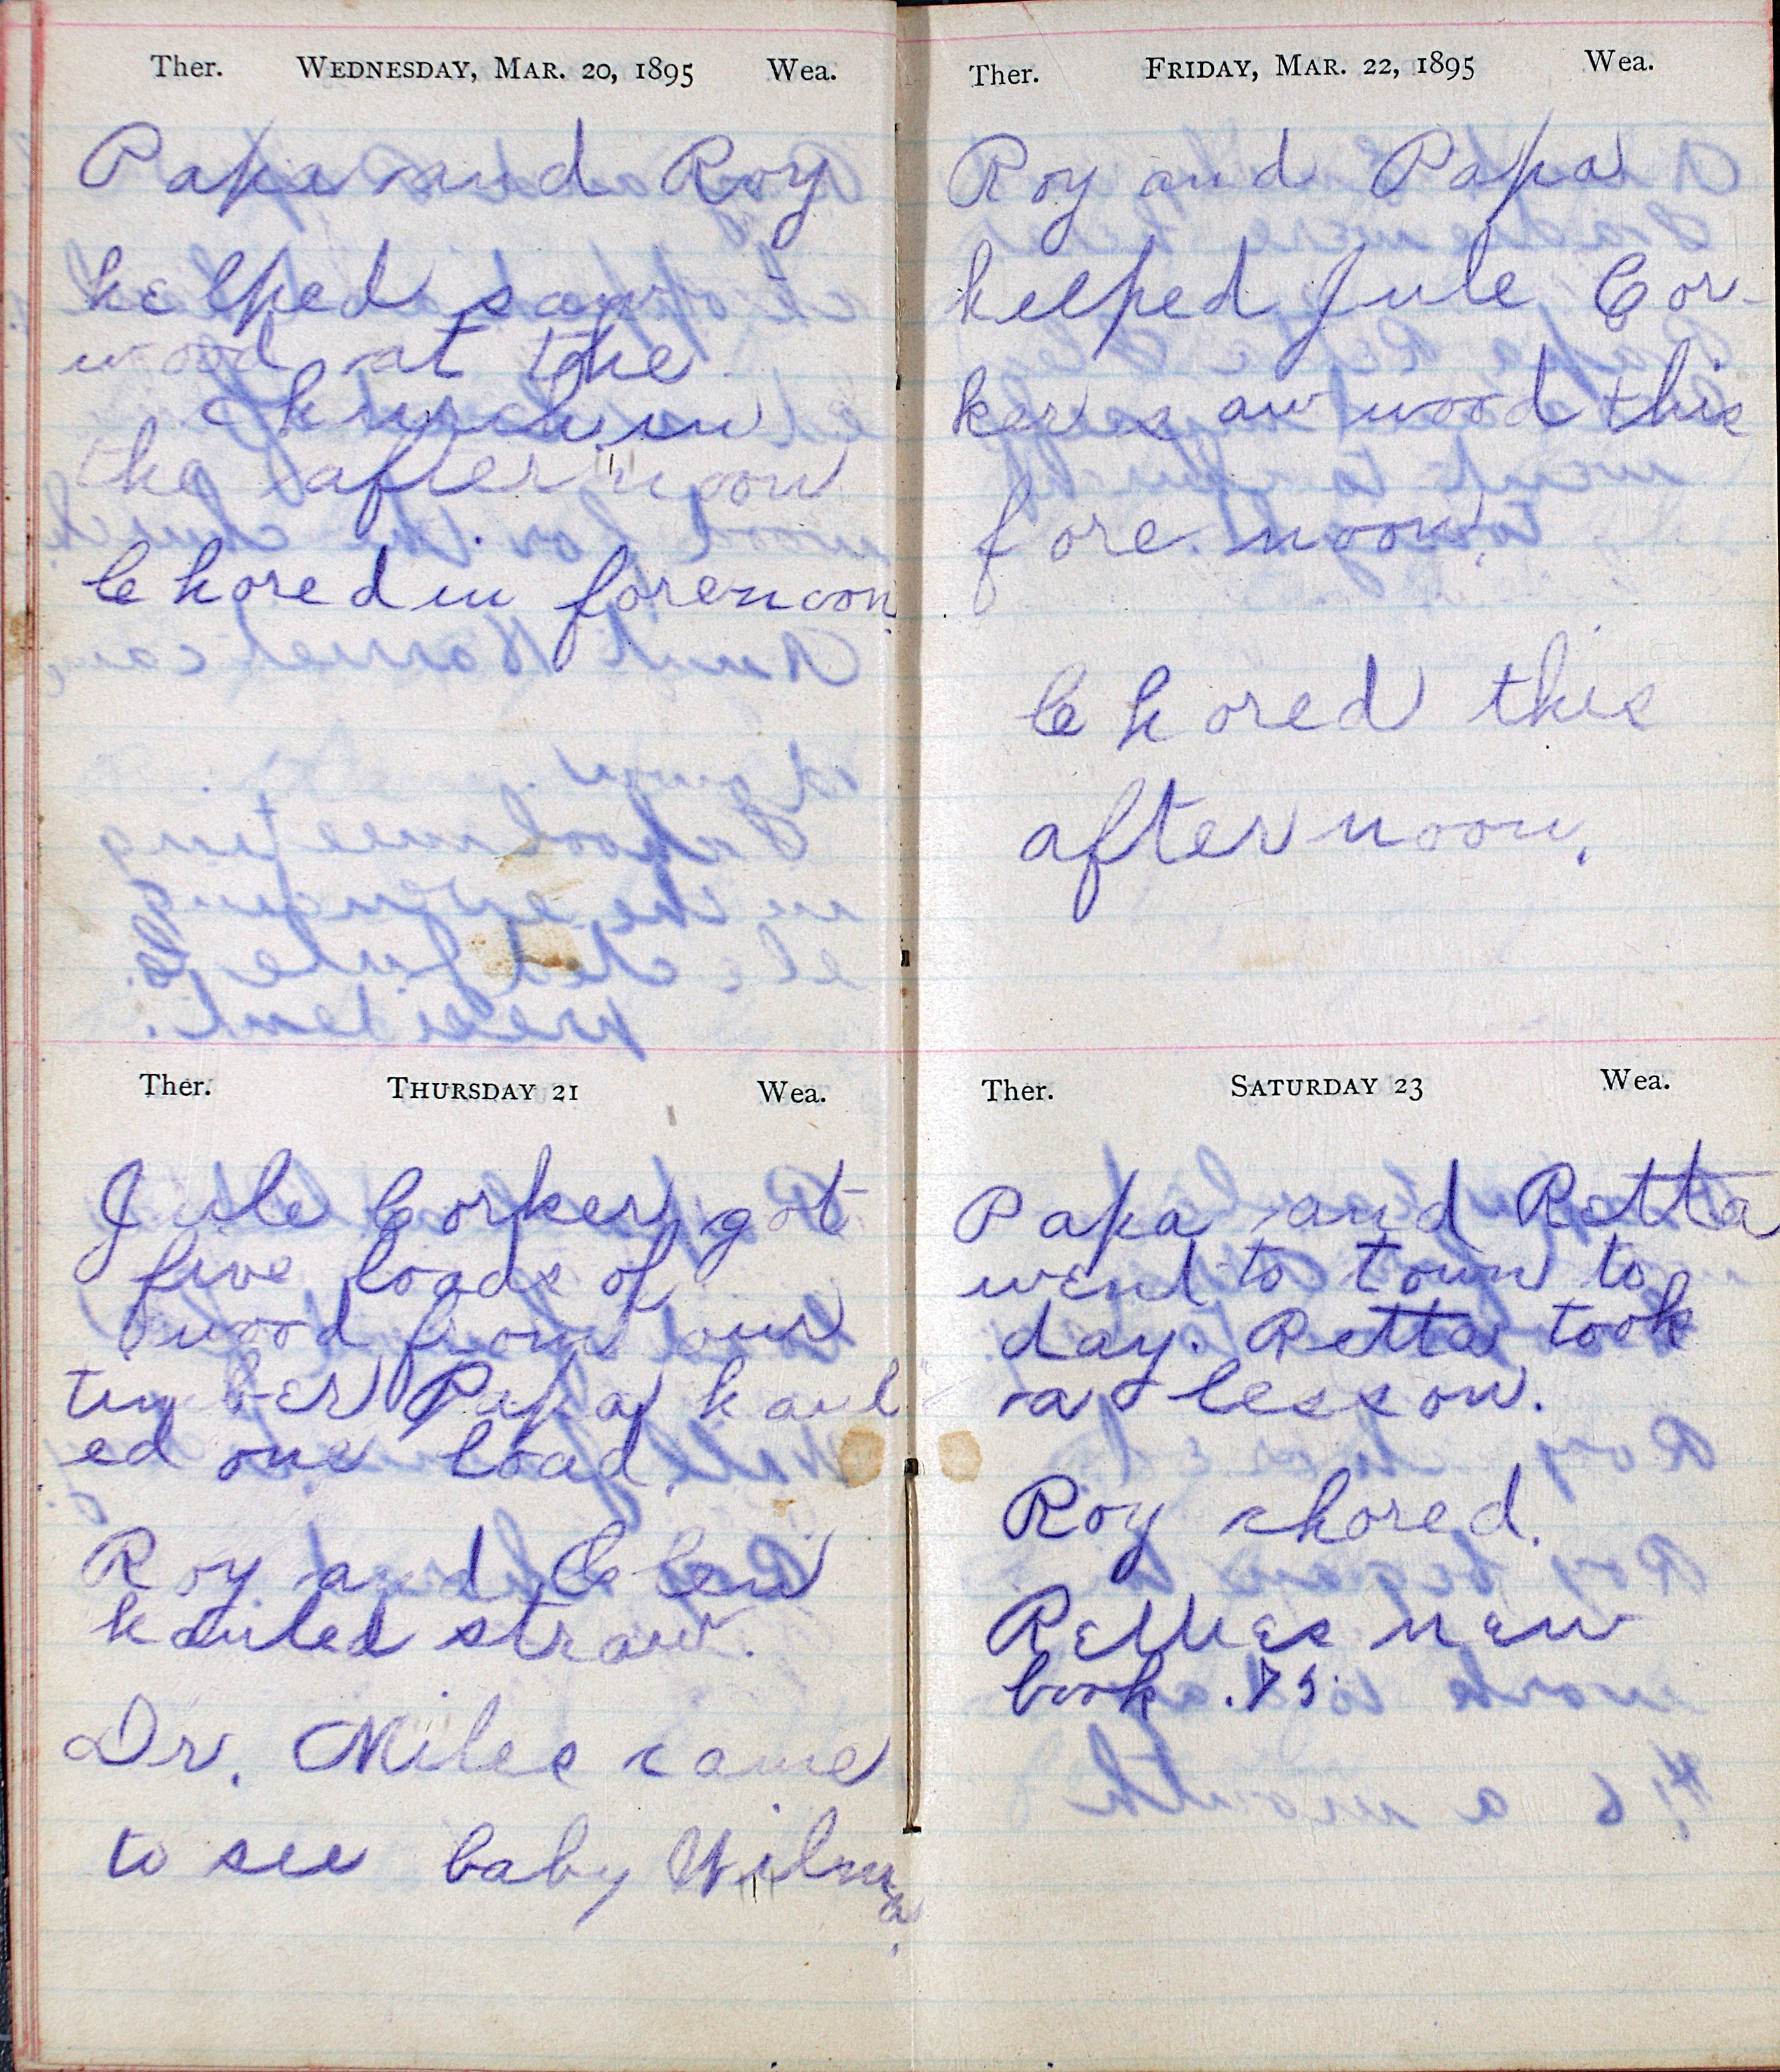 Ther. WEDNESDAY, MAR. 20, 1895 Wea.
Papa and Roy
helped saw
wood at the
church in
the afternoon
Chored in forenoon
Ther. THURSDAY 21 Wea.
Jule Corker got
five loads of
wood from our
timber Papa haul
ed one load.
Roy and Clen
hauled straw.
Dr. Miles came
to see baby Wilma.
Ther. FRIDAY, MAR. 22, 1895 Wea.
Roy and Papa
helped Jule Cor-
ker saw wood this
fore noon.
Chored this
afternoon.
Ther. SATURDAY 23 Wea.
Papa and Retta
went to town to
day. Retta took
a lesson.
Roy chored.
Rettas new
book .75